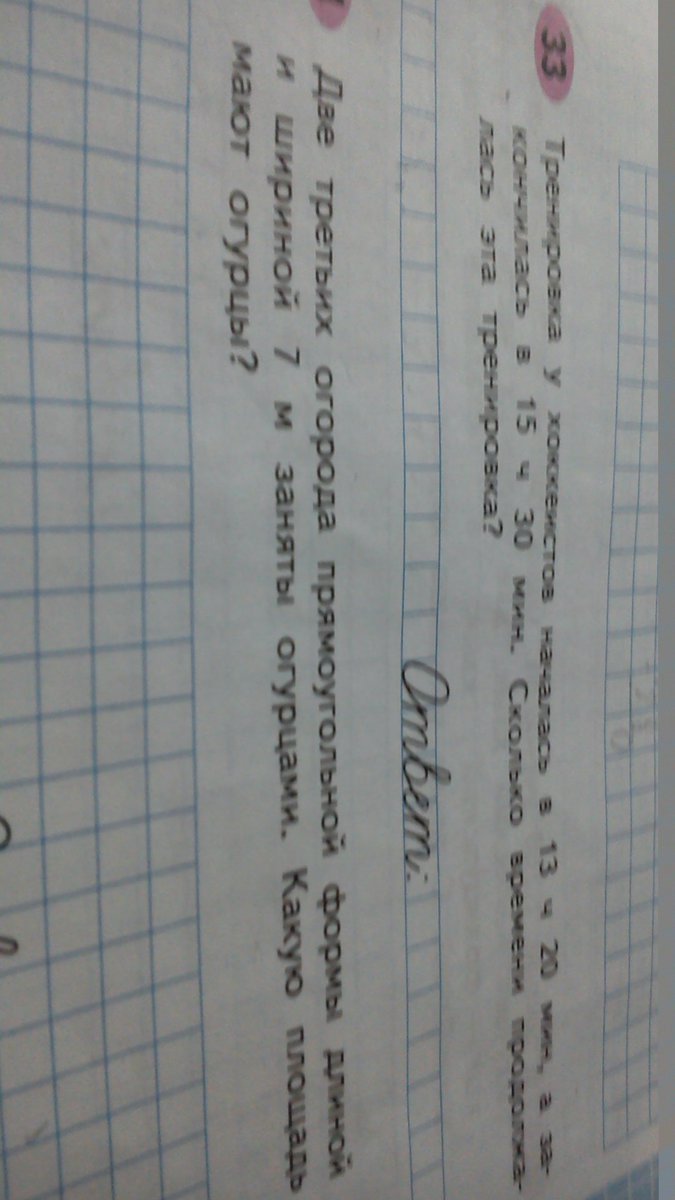 33 Тренировка у хоккеистов началась в 13 ч 20 мин, а за-
кончилась в 15 ч 30 мин. Сколько времени продолжа-
лась эта тренировка?
Ответ:
Две третьих огорода прямоугольной формы длиной
и шириной 7 м заняты огурцами. Какую площадь
мают огурцы?